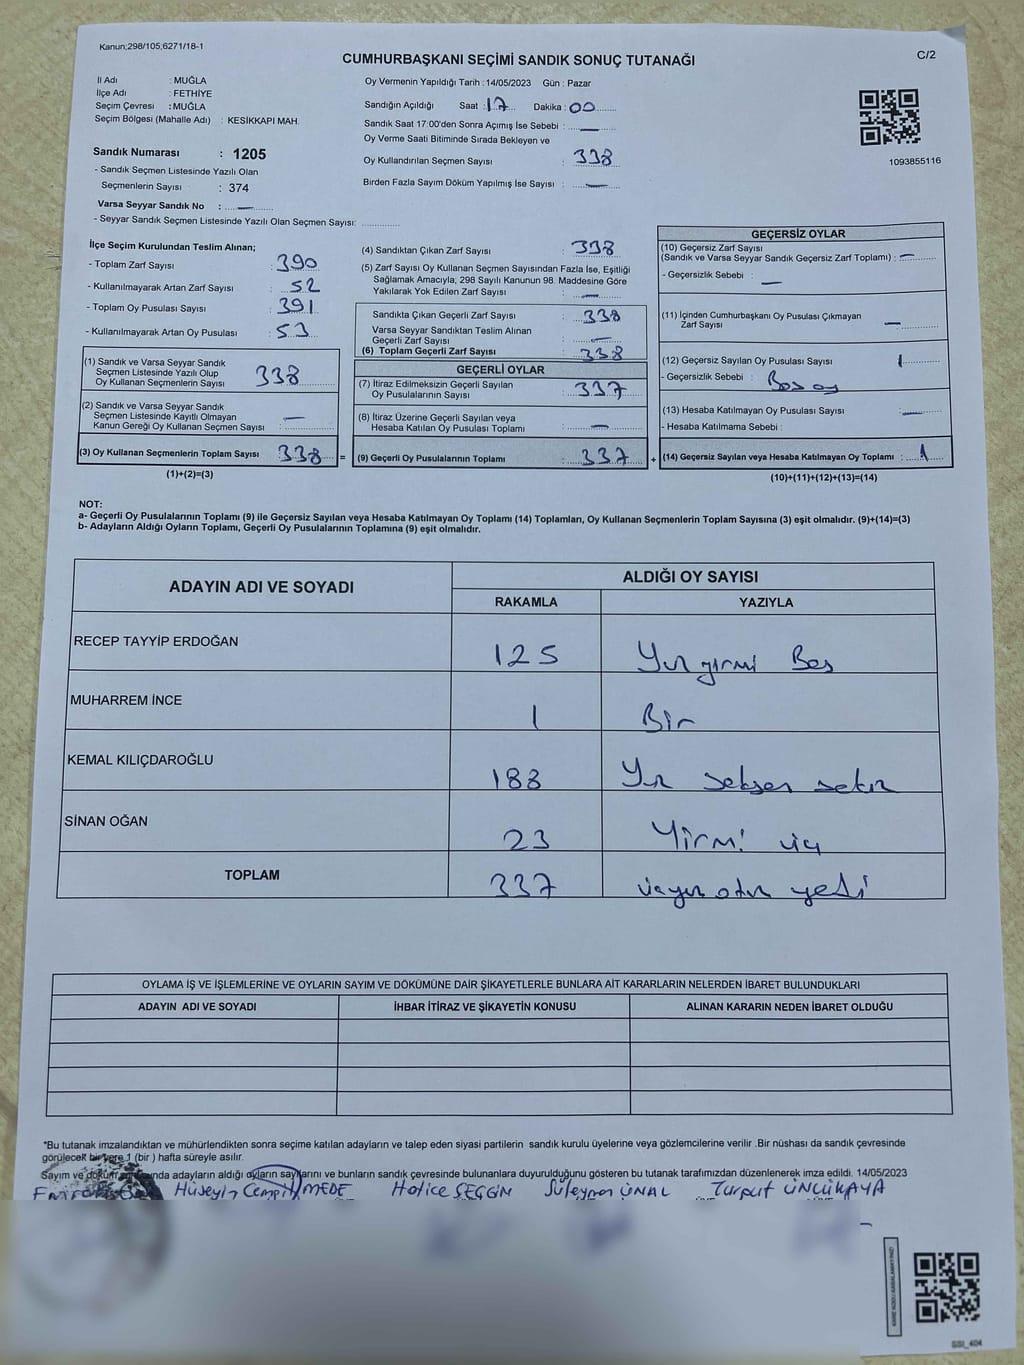 Kanun;298/105;6271/18-1
CUMHURBAŞKANI SEÇİMİ SANDIK SONUÇ TUTANAĞI
C/2
İl Adı : MUĞLA
İlçe Adı : FETHİYE
Seçim Çevresi : MUĞLA
Seçim Bölgesi (Mahalle Adı) : KESİKKAPI MAH.
Sandık Numarası : 1205
- Sandık Seçmen Listesinde Yazılı Olan
Seçmenlerin Sayısı : 374
Varsa Seyyar Sandık No : —
- Seyyar Sandık Seçmen Listesinde Yazılı Olan Seçmen Sayısı:
Oy Vermenin Yapıldığı Tarih : 14/05/2023 Gün : Pazar
Sandığın Açıldığı Saat : 17 Dakika : 00
Sandık Saat 17:00'den Sonra Açımış İse Sebebi : —
Oy Verme Saati Bitiminde Sırada Bekleyen ve
Oy Kullandırılan Seçmen Sayısı : 338
Birden Fazla Sayım Döküm Yapılmış İse Sayısı : —
1093855116
İlçe Seçim Kurulundan Teslim Alınan;
- Toplam Zarf Sayısı : 390
- Kullanılmayarak Artan Zarf Sayısı : 52
- Toplam Oy Pusulası Sayısı : 391
- Kullanılmayarak Artan Oy Pusulası : 53
(1) Sandık ve Varsa Seyyar Sandık
Seçmen Listesinde Yazılı Olup
Oy Kullanan Seçmenlerin Sayısı 338
(2) Sandık ve Varsa Seyyar Sandık
Seçmen Listesinde Kayıtlı Olmayan
Kanun Gereği Oy Kullanan Seçmen Sayısı : —
(3) Oy Kullanan Seçmenlerin Toplam Sayısı 338 =
(1)+(2)=(3)
(4) Sandıktan Çıkan Zarf Sayısı : 338
(5) Zarf Sayısı Oy Kullanan Seçmen Sayısından Fazla İse, Eşitliği
Sağlamak Amacıyla; 298 Sayılı Kanunun 98. Maddesine Göre
Yakılarak Yok Edilen Zarf Sayısı : —
Sandıkta Çıkan Geçerli Zarf Sayısı : 338
Varsa Seyyar Sandıktan Teslim Alınan
Geçerli Zarf Sayısı : —
(6) Toplam Geçerli Zarf Sayısı : 338
GEÇERLİ OYLAR
(7) İtiraz Edilmeksizin Geçerli Sayılan
Oy Pusulalarının Sayısı : 337
(8) İtiraz Üzerine Geçerli Sayılan veya
Hesaba Katılan Oy Pusulası Toplamı : —
(9) Geçerli Oy Pusulalarının Toplamı : 337 +
GEÇERSİZ OYLAR
(10) Geçersiz Zarf Sayısı
(Sandık ve Varsa Seyyar Sandık Geçersiz Zarf Toplamı) : —
- Geçersizlik Sebebi : —
(11) İçinden Cumhurbaşkanı Oy Pusulası Çıkmayan
Zarf Sayısı —
(12) Geçersiz Sayılan Oy Pusulası Sayısı : 1
- Geçersizlik Sebebi : Boş oy
(13) Hesaba Katılmayan Oy Pusulası Sayısı : —
- Hesaba Katılmama Sebebi :
(14) Geçersiz Sayılan veya Hesaba Katılmayan Oy Toplamı : 1
(10)+(11)+(12)+(13)=(14)
NOT:
a- Geçerli Oy Pusulalarının Toplamı (9) ile Geçersiz Sayılan veya Hesaba Katılmayan Oy Toplamı (14) Toplamları, Oy Kullanan Seçmenlerin Toplam Sayısına (3) eşit olmalıdır. (9)+(14)=(3)
b- Adayların Aldığı Oyların Toplamı, Geçerli Oy Pusulalarının Toplamına (9) eşit olmalıdır.
ADAYIN ADI VE SOYADI ALDIĞI OY SAYISI
RAKAMLA YAZIYLA
RECEP TAYYİP ERDOĞAN 125 Yüz yirmi Beş
MUHARREM İNCE 1 Bir
KEMAL KILIÇDAROĞLU 188 Yüz seksen sekiz
SİNAN OĞAN 23 Yirmi üç
TOPLAM 337 üçyüz otuz yedi
OYLAMA İŞ VE İŞLEMLERİNE VE OYLARIN SAYIM VE DÖKÜMÜNE DAİR ŞİKAYETLERLE BUNLARA AİT KARARLARIN NELERDEN İBARET BULUNDUKLARI
ADAYIN ADI VE SOYADI İHBAR İTİRAZ VE ŞİKAYETİN KONUSU ALINAN KARARIN NEDEN İBARET OLDUĞU
*Bu tutanak imzalandıktan ve mühürlendikten sonra seçime katılan adayların ve talep eden siyasi partilerin sandık kurulu üyelerine veya gözlemcilerine verilir .Bir nüshası da sandık çevresinde
görülecek bir yere 1 (bir ) hafta süreyle asılır.
Sayım ve adayların aldığı oyların sayılarını ve bunların sandık çevresinde bulunanlara duyurulduğunu gösteren bu tutanak tarafımızdan düzenlenerek imza edildi. 14/05/2023
Hüseyin Cempil MEDE Hatice SEÇGİN Süleyman ÜNAL Turgut ÜNLÜKAYA
SSİ_404